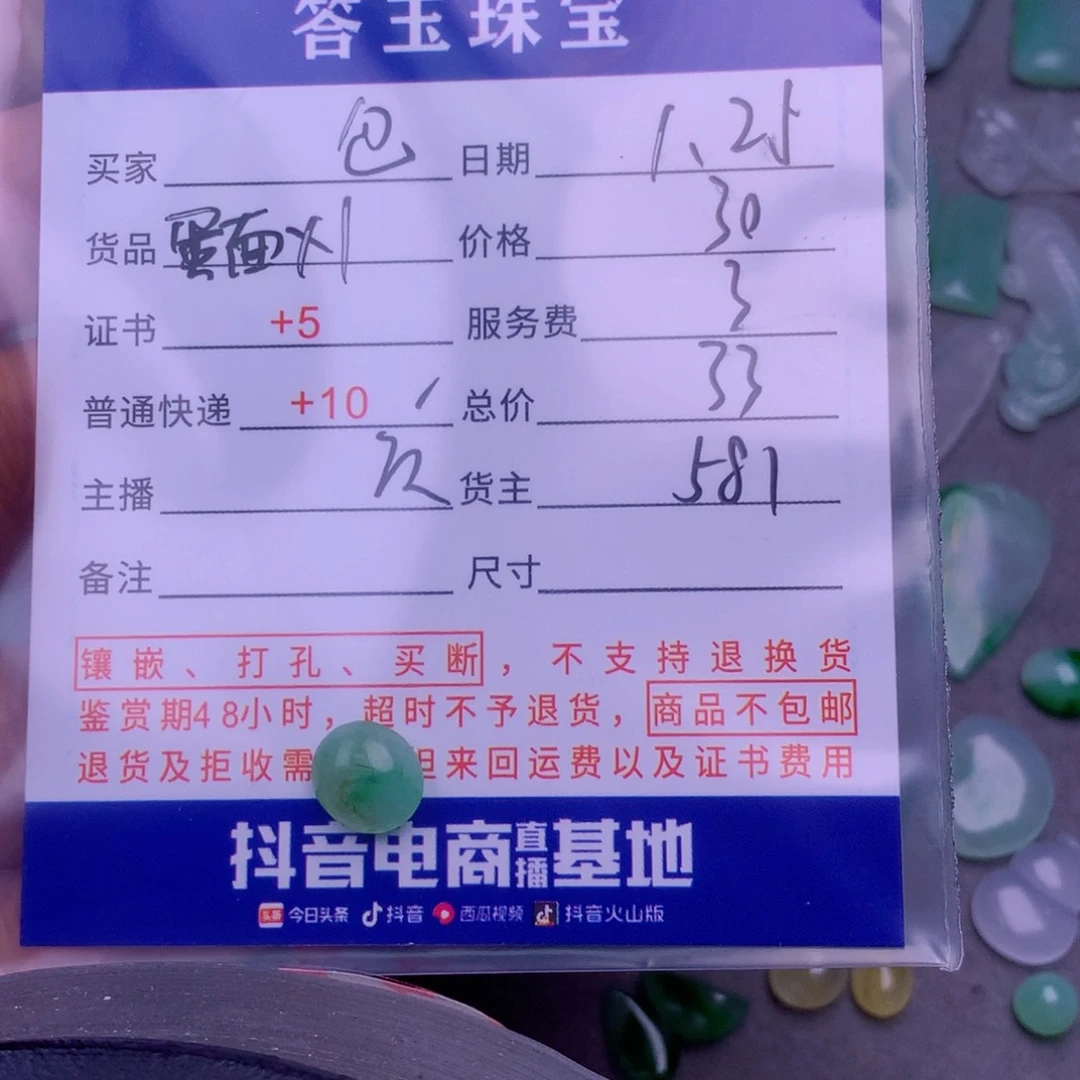 答玉珠宝
买家 包 日期 1.25
货品 蛋面x1 价格 30
证书 +5 服务费 3
普通快递 +10 总价 33
主播 货主 581
备注 尺寸
镶嵌、打孔、买断，不支持退换货
鉴赏期48小时，超时不予退货，商品不包邮
退货及拒收需 担来回运费以及证书费用
抖音电商直播基地
头条 今日头条 抖音 西瓜视频 抖音火山版